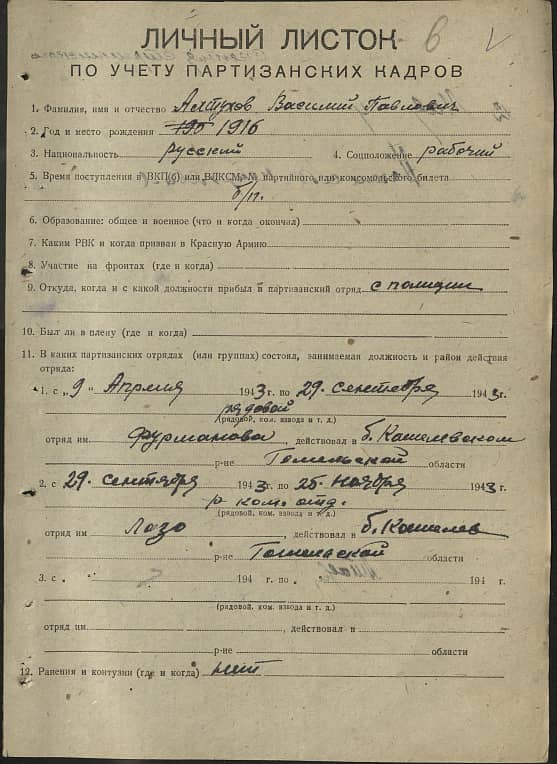 ЛИЧНЫЙ ЛИСТОК
ПО УЧЕТУ ПАРТИЗАНСКИХ КАДРОВ
1. Фамилия, имя и отчество Алтухов Василий Павлович
2. Год и место рождения 1916
3. Национальность русский 4. Соцположение рабочий
5. Время поступления в ВКП(б) или ВЛКСМ, № партийного или комсомольского билета
б/п.
6. Образование: общее и военное (что и когда окончил)
7. Каким РВК и когда призван в Красную Армию
8. Участие на фронтах (где и когда)
9. Откуда, когда и с какой должности прибыл в партизанский отряд с полиции
10. Был ли в плену (где и когда)
11. В каких партизанских отрядах (или группах) состоял, занимаемая должность и район действия
отряда:
1. с „9„ Апреля 1943 г. по 29. сентября 1943 г.
рядовой
(рядовой, ком. взвода и т. д.)
отряд им. Фурманова, действовал в б. Кошелевском
р-не Гомельской области
2. с 29. сентября 1943 г. по 25. ноября 1943 г.
ком. отд.
(рядовой, ком. взвода и т. д.)
отряд им Лазо, действовал в б. Кошелев
р-не Гомельской области
3. с 194 г. по 194 г.
(рядовой, ком. взвода и т. д.)
отряд им., действовал в
р-не области
12. Ранения и контузии (где и когда) нет